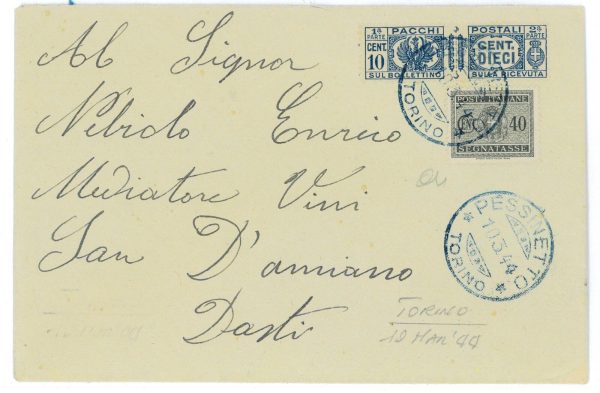 1ª PARTE PACCHI
CENT. 10
SUL BOLLETTINO
POSTALI 2ª PARTE
CENT. DIECI
SULLA RICEVUTA
TORINO
POSTE ITALIANE
40
SEGNATASSE
Al Signor
Nebiolo Enrico
Mediatore Vini
San D'amiano
Dasti
PESSINETTO
10.3.44
TORINO
TORINO
10 MAR '44